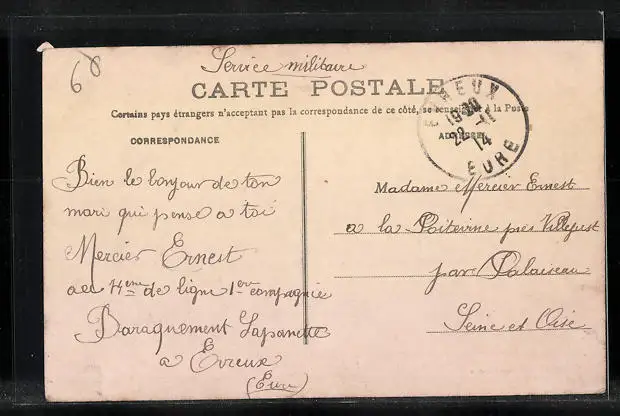 68
Service militaire
CARTE POSTALE
Certains pays étrangers n'acceptant pas la correspondance de ce côté, se renseigner à la Poste
CORRESPONDANCE
Bien le bonjour de ton
mari qui pense a toi
Mercier Ernest
au 4eme de ligne 1ere compagnie
Baraquement
a Evreux
(Eure)
EVREUX
22 - 11
14
EURE
ADRESSE
Madame Mercier Ernest
a la Poitevine près Villejust
par Palaiseau
Seine et Oise